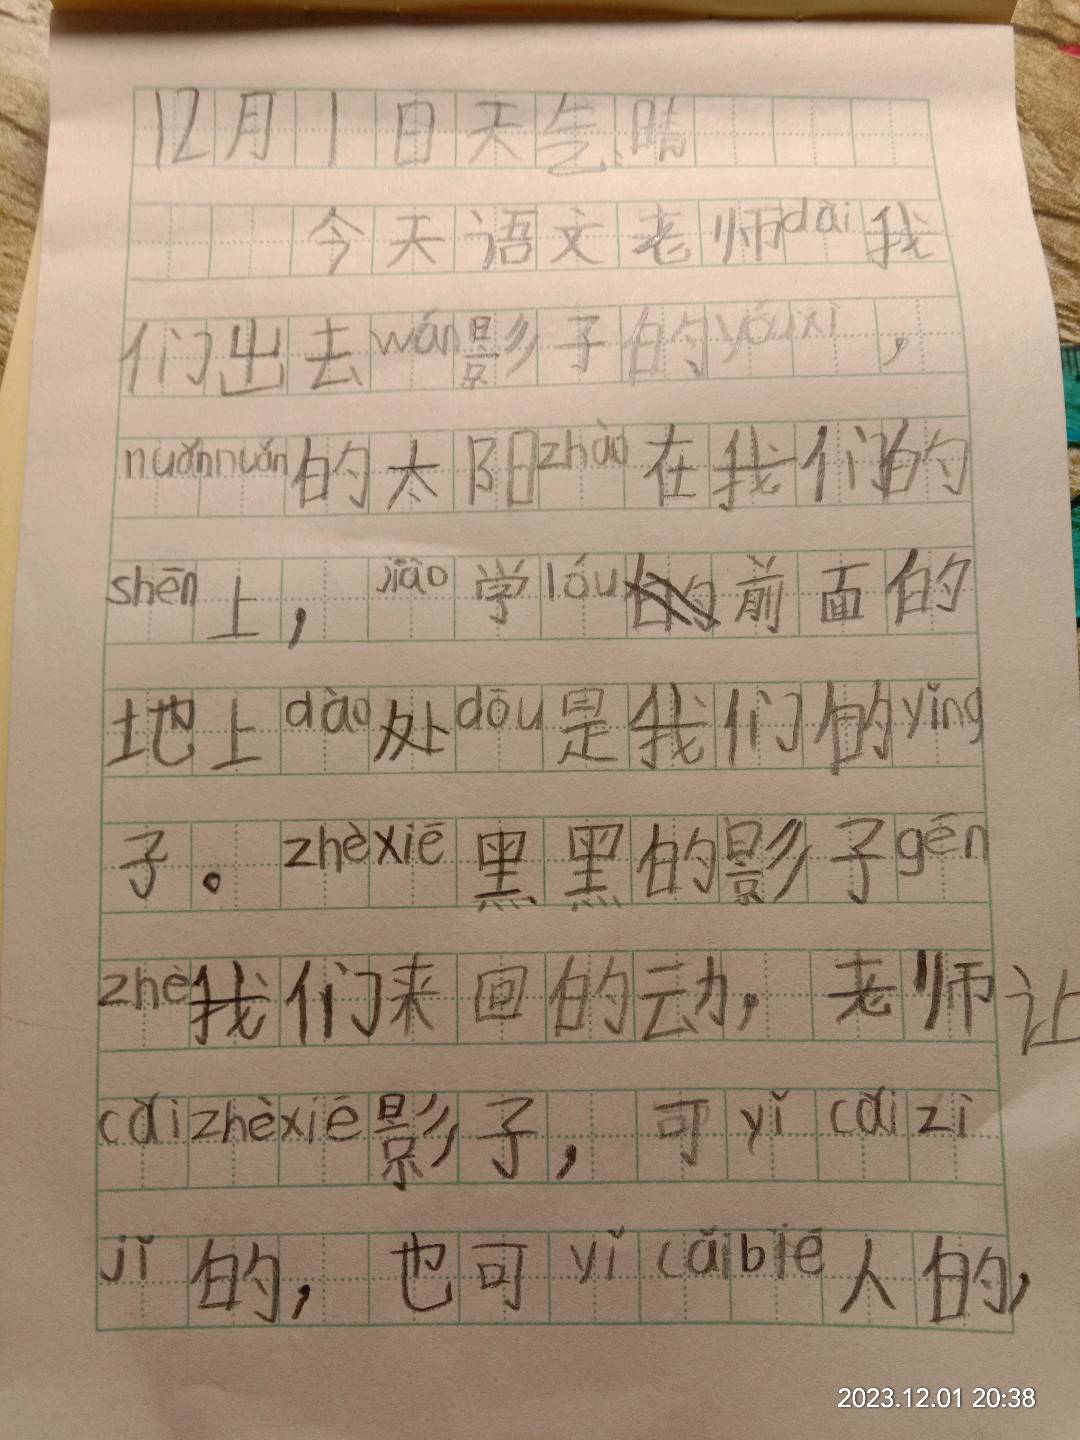 12月1日天气晴
今天语文老师dài我
们出去wán影子的yóuxì，
nuǎnnuǎn的太阳zhào在我们的
shēn上，jiāo学lóu前面的
地上dào处dōu是我们的yǐng
子。zhèxiē黑黑的影子gēn
zhè我们来回的动，老师让
cǎizhèxiē影子，可yǐ cǎi zì
jǐ的，也可yǐ cǎibié人的，
2023.12.01 20:38